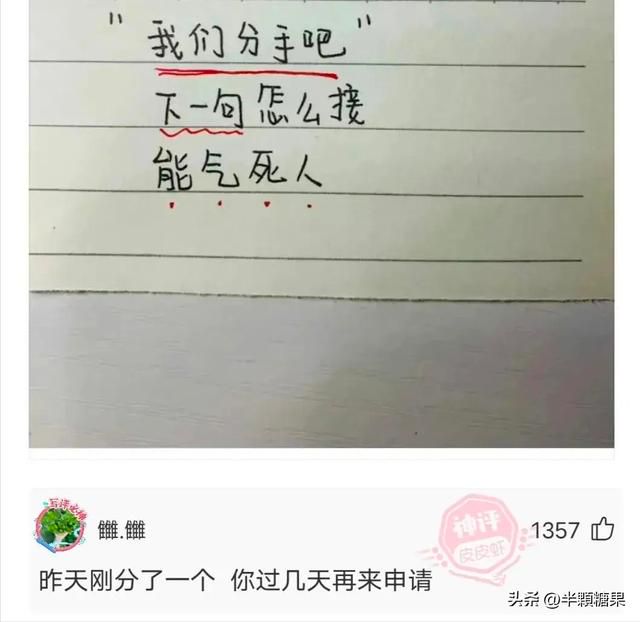 "我们分手吧"
下一句怎么接
能气死人
神评
皮皮虾
1357
昨天刚分了一个 你过几天再来申请
头条 @半顆糖果